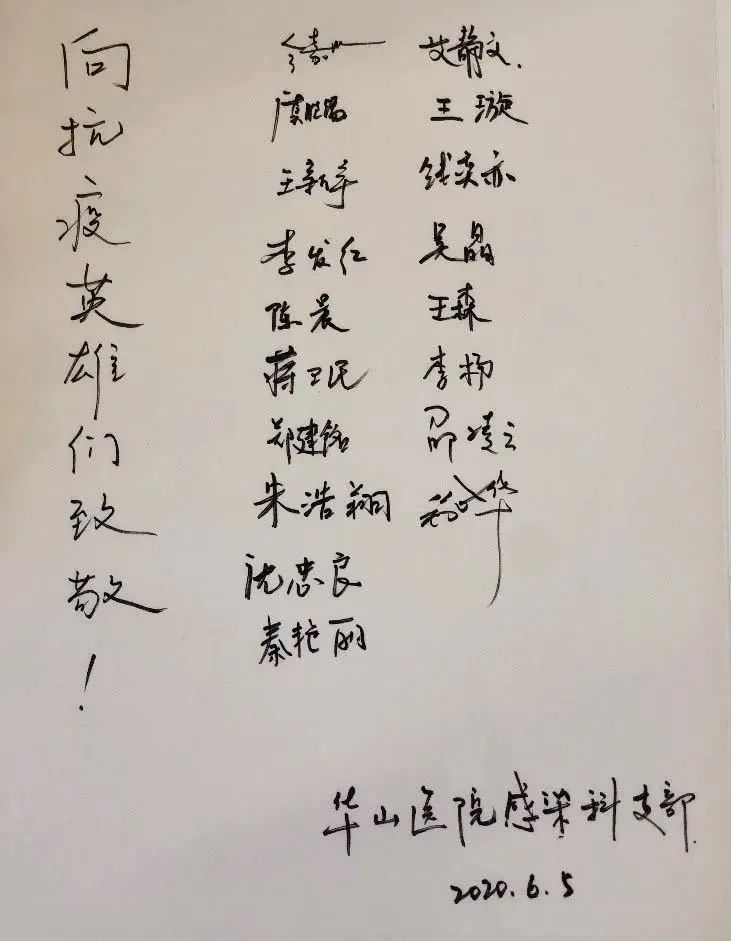 向抗疫英雄们致敬！
虞胜镭
王新宇
李发红
陈晨
蒋卫民
郑建铭
朱浩翔
沈忠良
秦艳丽
艾静文.
王璇
钱奕亦
吴晶
王森
李杨
邵凌云
华山医院感染科支部.
2020.6.5